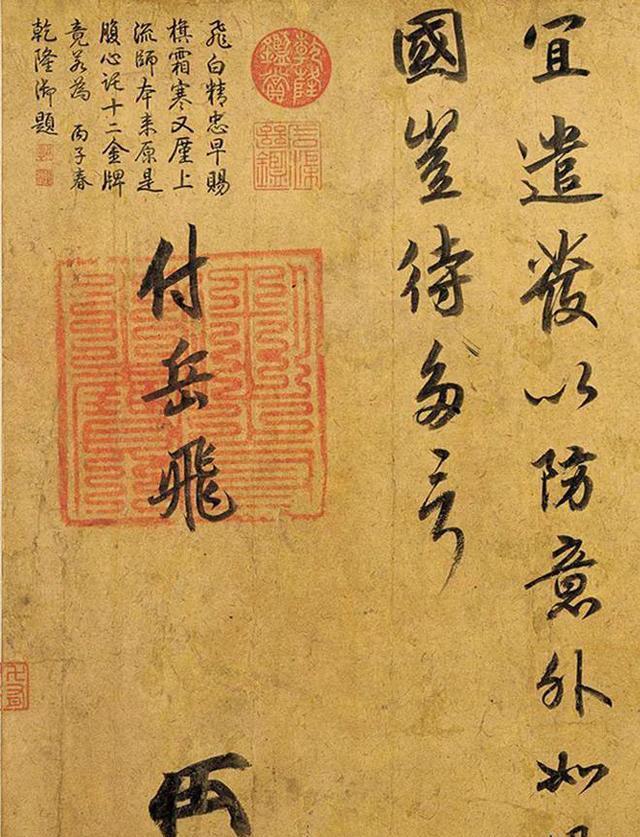 宜遣發以防意外如
國豈待多言
付岳飛
乾隆鑑賞
飛白精忠早賜
旗霜寒又屢上
流師本來原是
腹心託十二金牌
竟若為 丙子春
乾隆御題